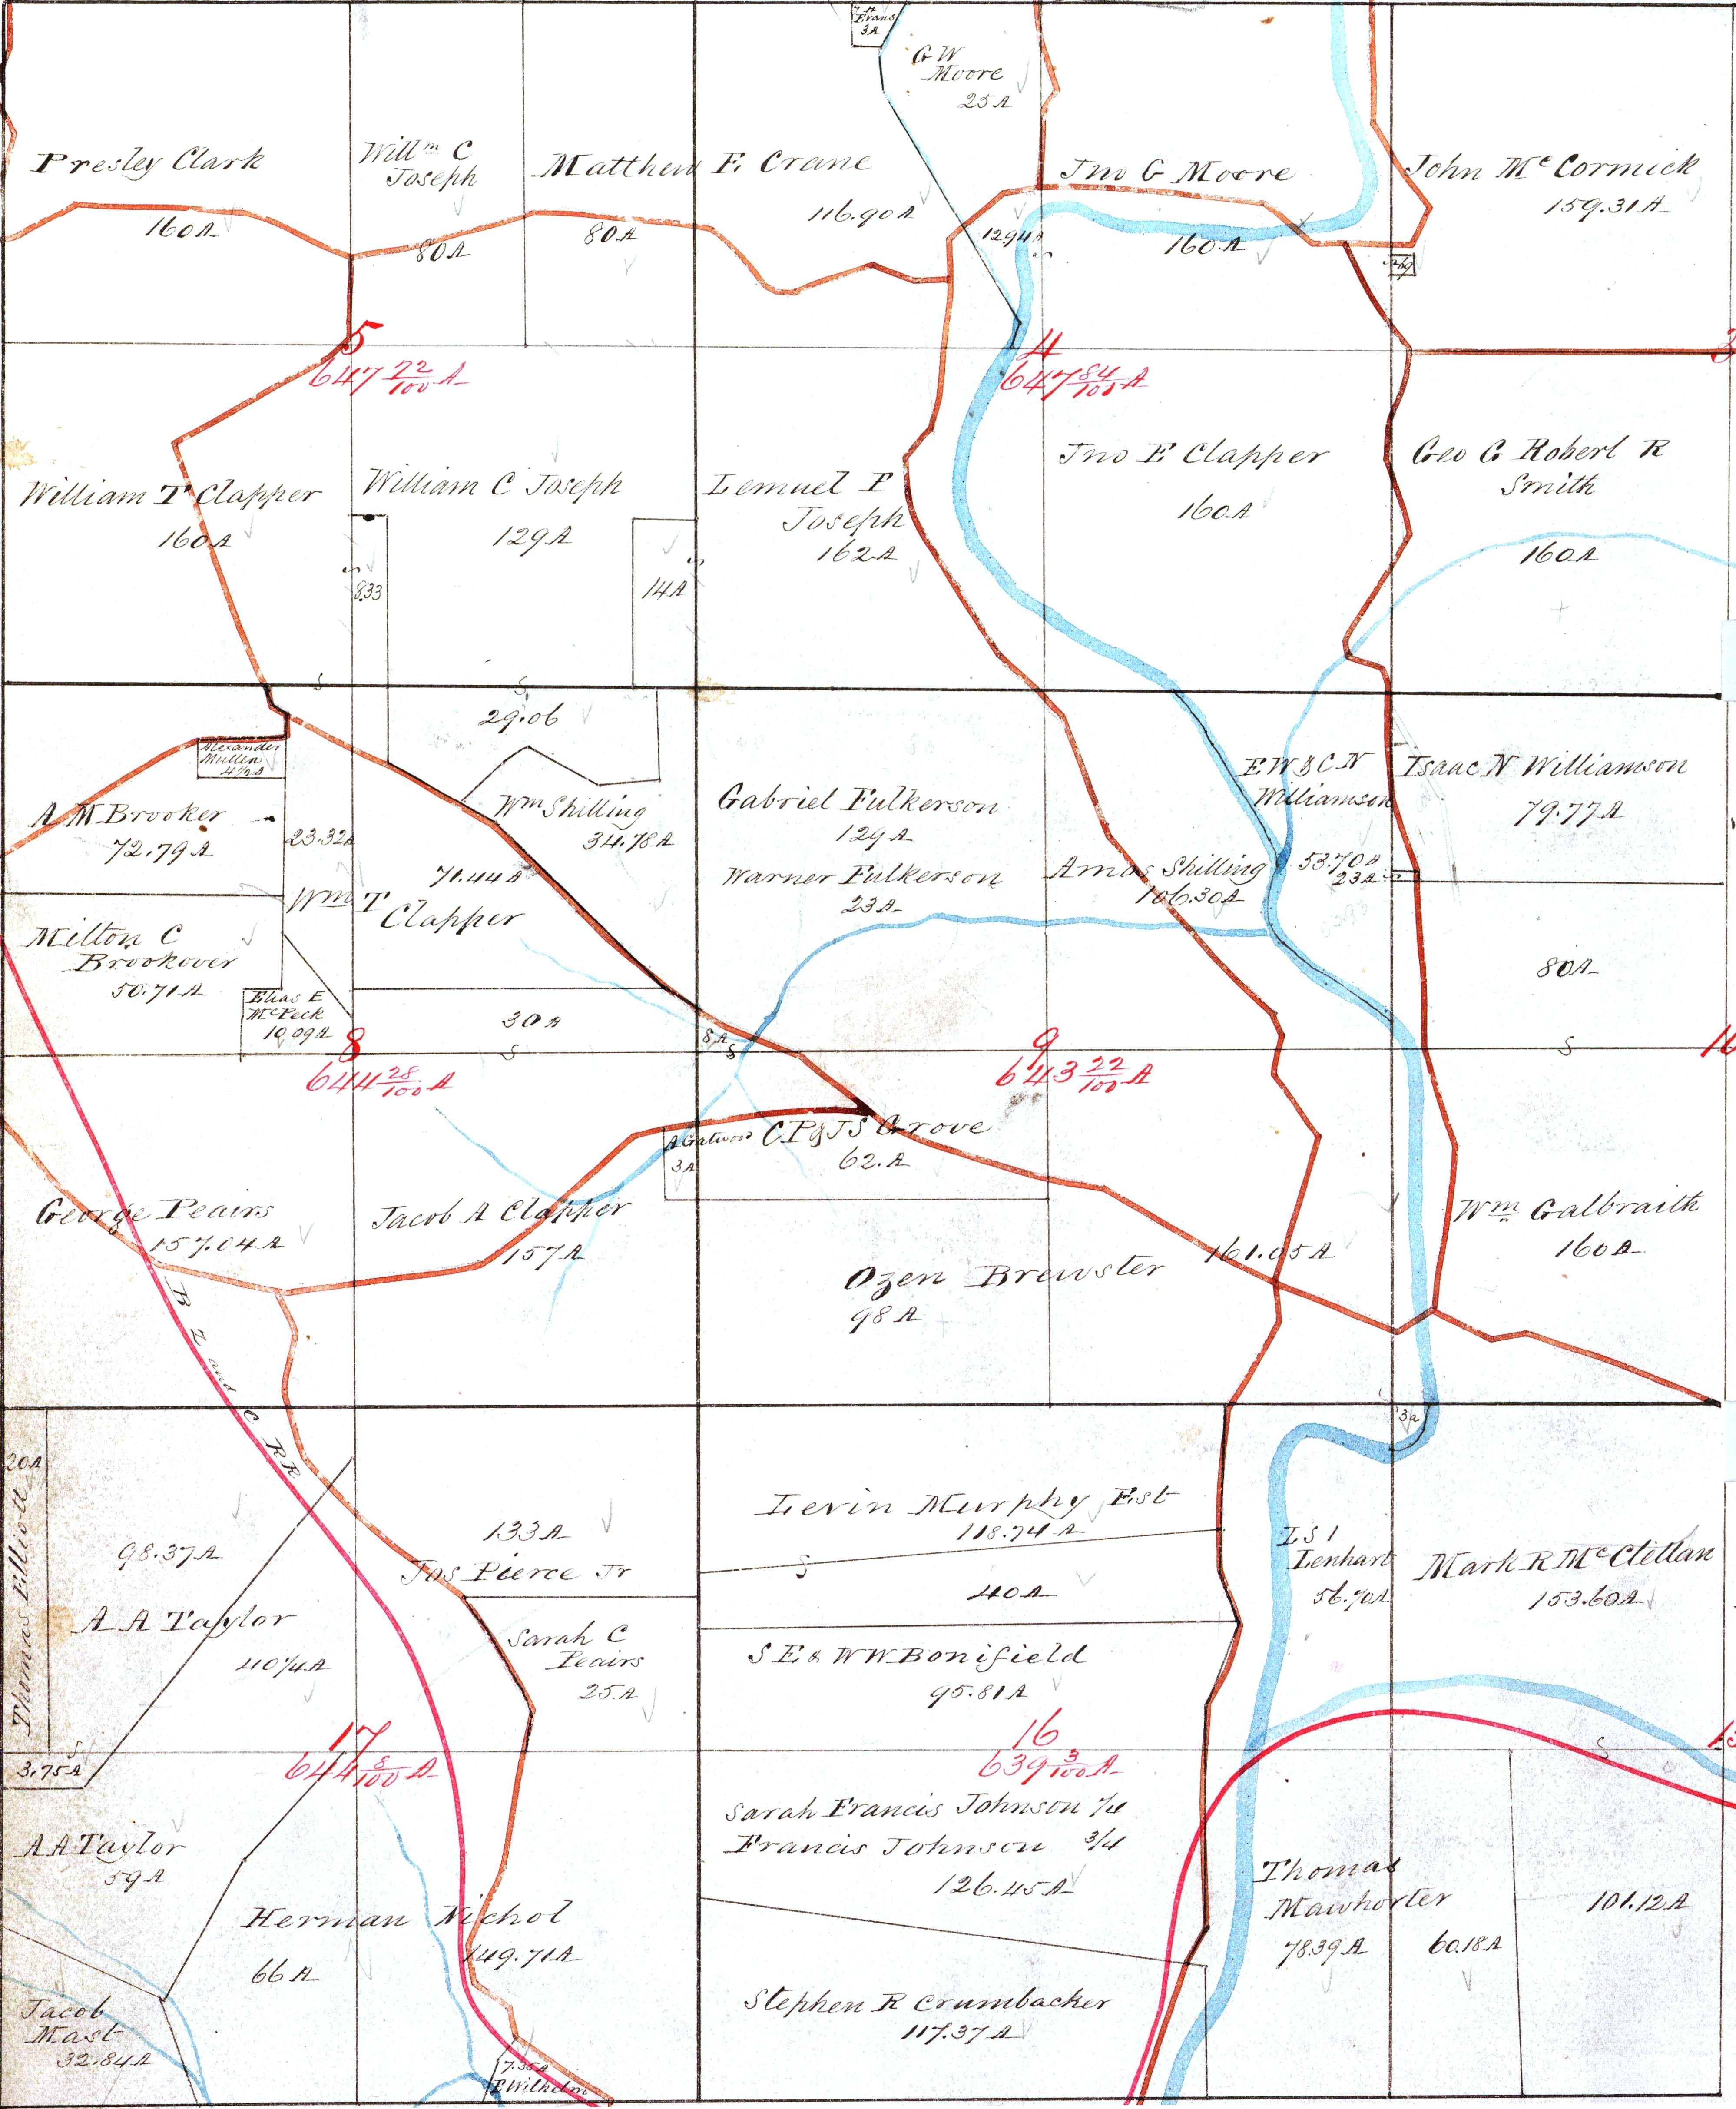 Evans
3A
G W
Moore
25A
Presley Clark
160A
Willm C
Joseph
80A
Matthew E Crane
80A
116.90A
12.94A
Jno G Moore
160A
John Mc Cormick
159.31A
5
647 22/100 A
4
647 84/100 A
3
William T Clapper
160A
William C Joseph
129A
8.33
14A
Lemuel F
Joseph
162A
Jno E Clapper
160A
Geo G Robert R
Smith
160A
29.06
Alexander
Mullen
4 1/2 A
A M Brooker
72.79A
23.32A
Wm Shilling
34.78A
71.44A
Wm T
Clapper
Gabriel Fulkerson
129A
Warner Fulkerson
23A
Amos Shilling
106.30A
E W & C N
Williamson
53.70A
23A
Isaac N Williamson
79.77A
80A
Milton C
Brookover
50.71A
Elias E
McPeck
10.09A
30A
8A
8
644 28/100 A
9
643 22/100 A
10
A Gatwood
3A
C P & J S Grove
62.A
George Peairs
157.04A
Jacob A Clapper
157A
Ozen Brewster
98A
161.05A
Wm Galbraith
160A
B Z and C RR
3a
20A
Thomas Elliott
98.37A
A A Taylor
40 1/4 A
133A
Jos Pierce Jr
Sarah C
Peairs
25A
Levin Murphy Est
118.74A
40A
S E & W W Bonifield
95.81A
L S I
Lenhart
56.70A
Mark R Mc Clellan
153.60A
17
644 8/100 A
16
639 3/100 A
15
3.75A
A A Taylor
59A
Herman Nichol
66A
149.71A
Sarah Francis Johnson 1/4
Francis Johnson 3/4
126.45A
Stephen R Crumbacker
117.37A
Thomas
Mawhorter
78.39A
60.18A
101.12A
Jacob
Mast
32.84A
7.35A
F Wilhelm